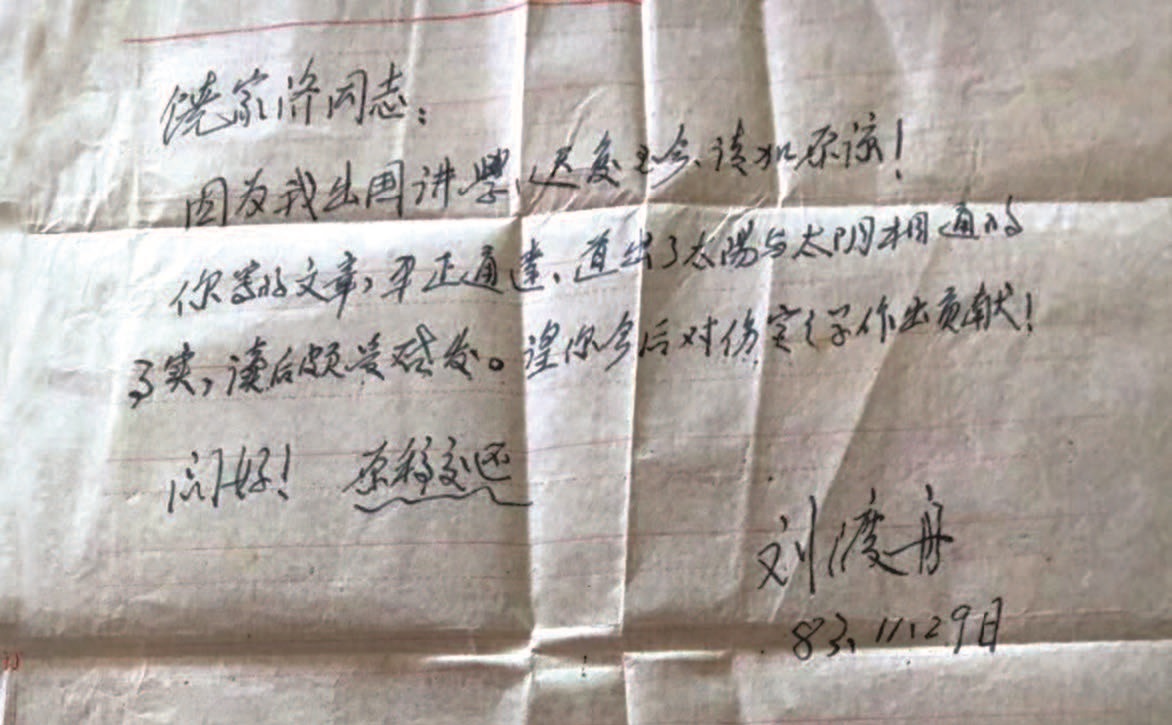 饶家济同志：
因为我出国讲学，迟复至今，请加原谅！
你写的文章，平正通达，道出了太阳与太阴相通的
事实，读后颇受启发。望你今后对伤寒学作出贡献！
问好！ 原稿交还
刘渡舟
83、11、29日